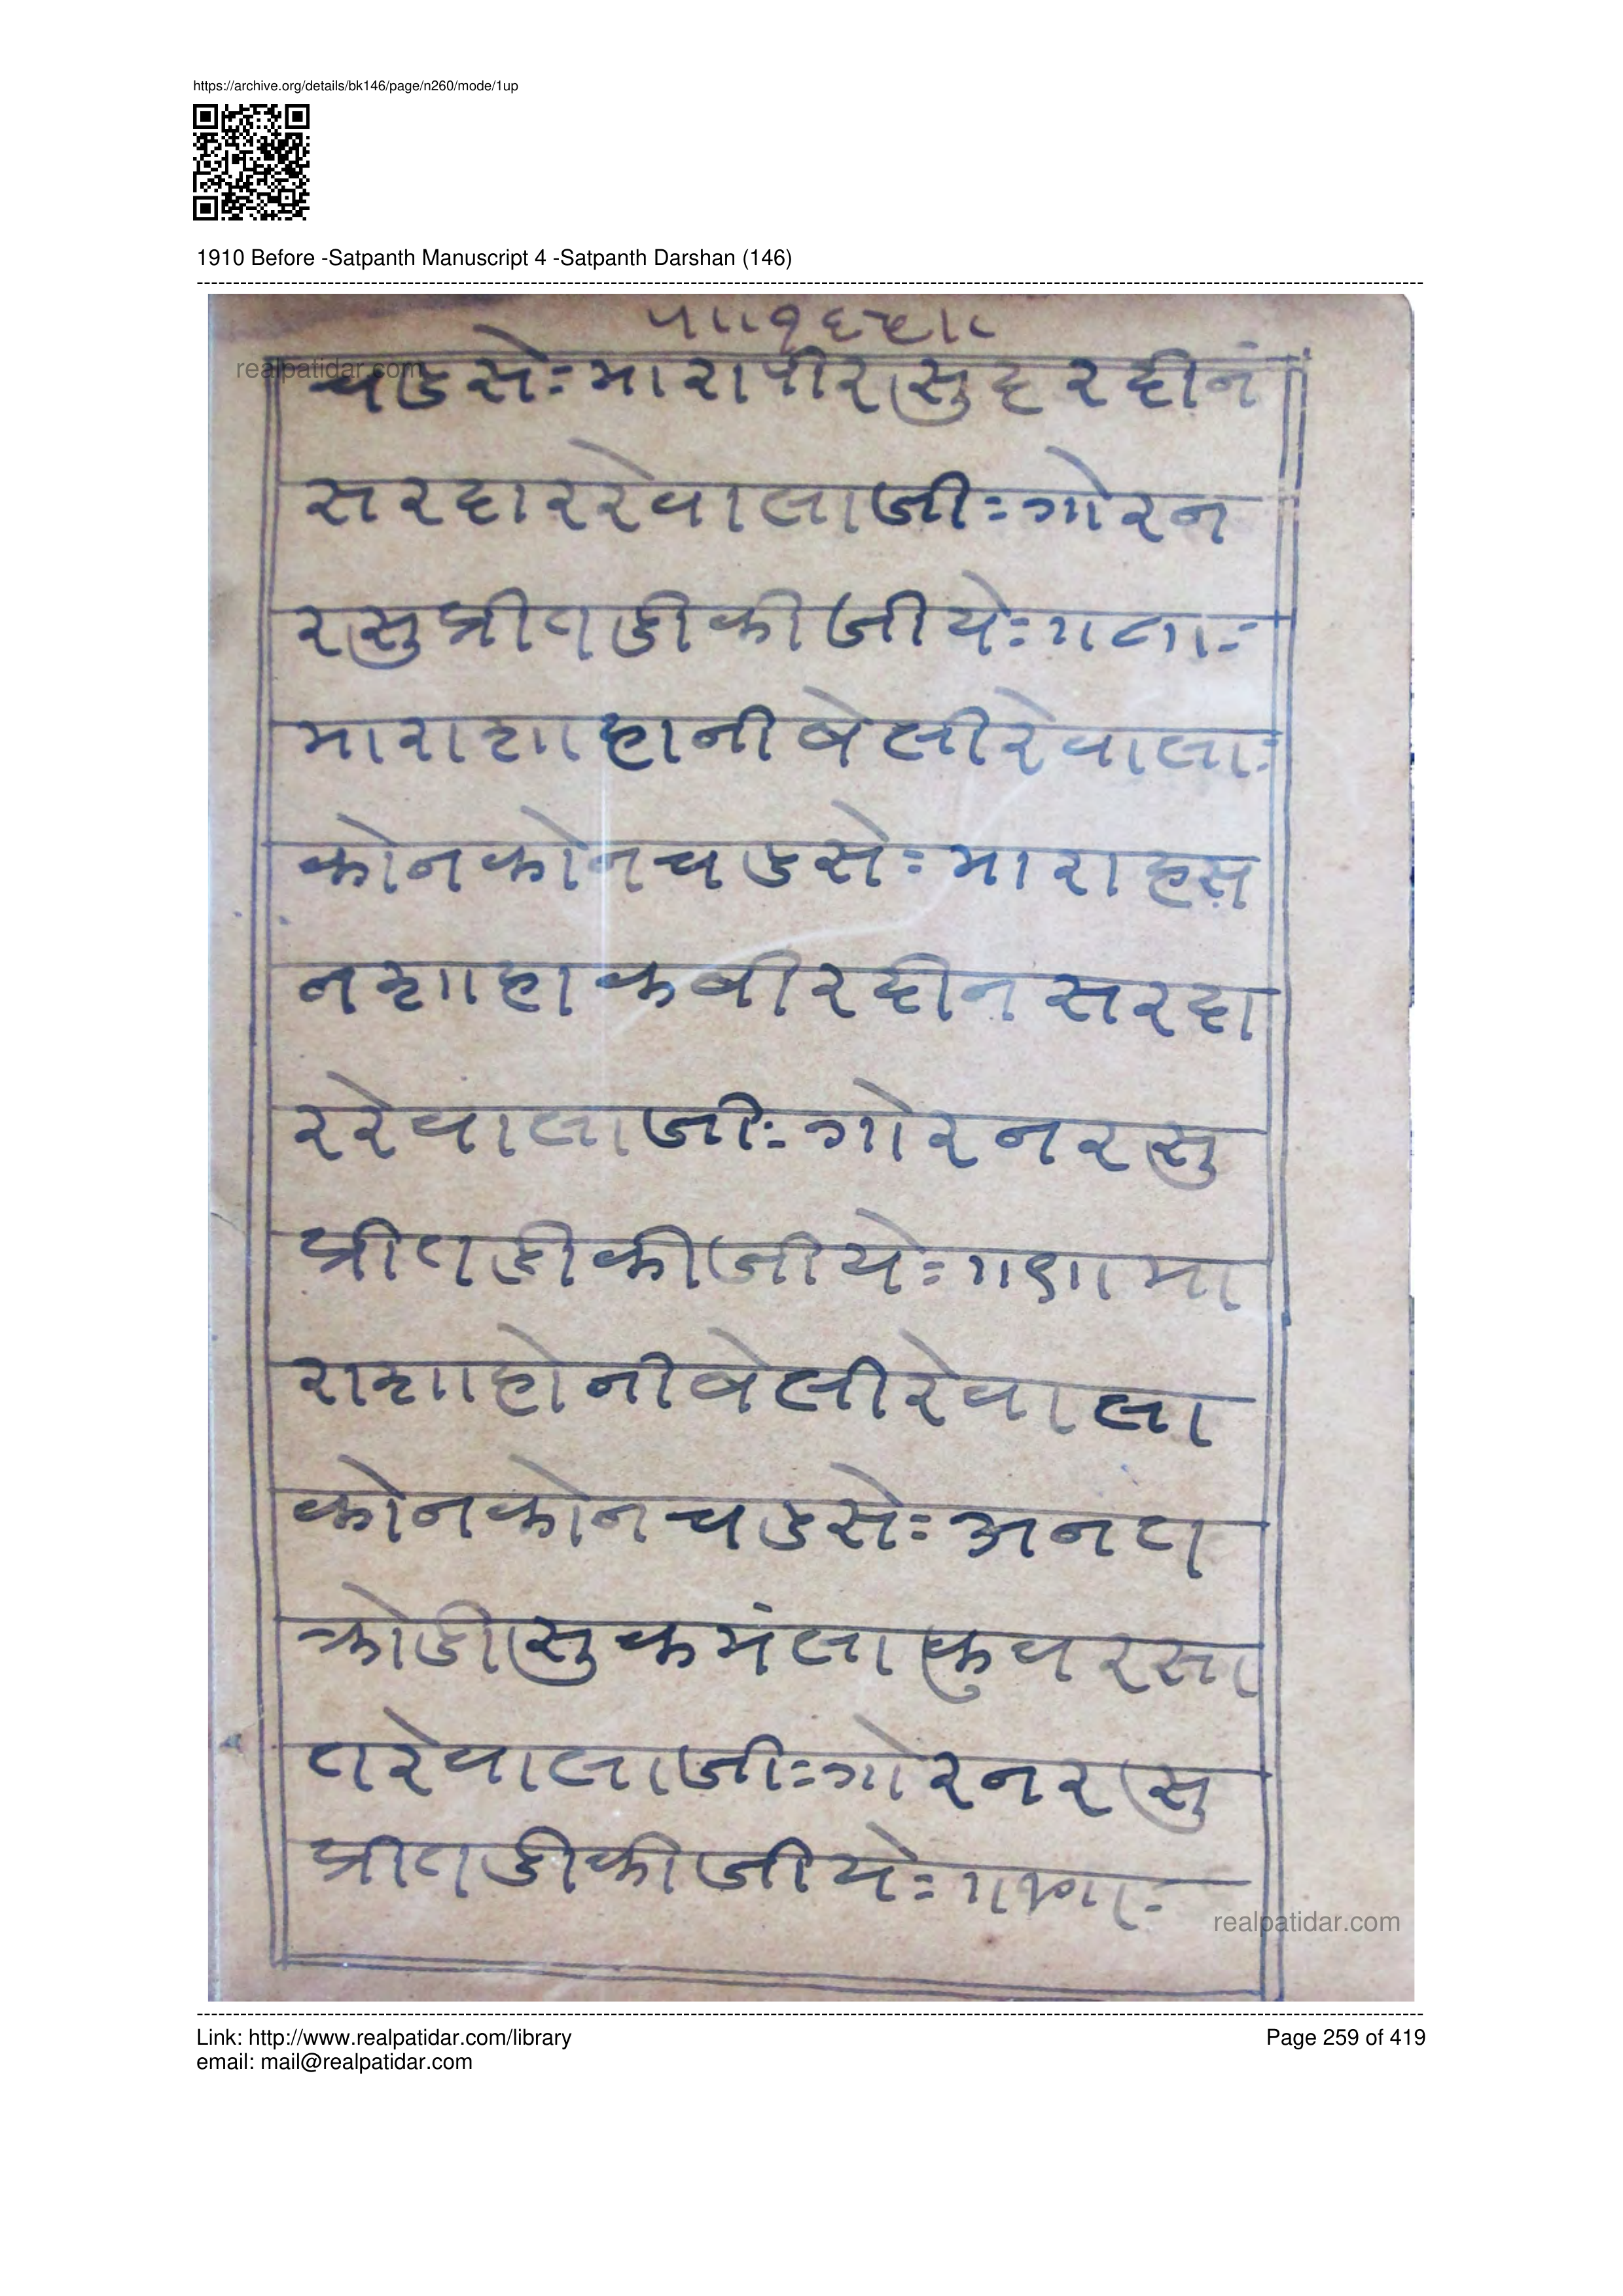 https://archive.org/details/bk146/page/n260/mode/1up
1910 Before -Satpanth Manuscript 4 -Satpanth Darshan (146)
realpatidar.com
चडसेः मारापीरसुदरदीनं
सरदाररेवालाजीः गोरन
रसुप्रीतडीकीजीयेः
माराशाहानीबेलीरेवालाः
कोनकोनचडसेः माराहस
नशाहाकबीरदीनसरदा
ररेवालाजीः गोरनरसु
प्रीतडीकीजीयेः ॥९॥ मा
राशाहोनीबेलीरेवाला
कोनकोनचडसेः अनत
क्रोडीसुकमंलाकुवरसा
तरेवालाजीः गोरनरसु
प्रीतडीकीजीयेः
realpatidar.com
Link: http://www.realpatidar.com/library
Page 259 of 419
email: mail@realpatidar.com